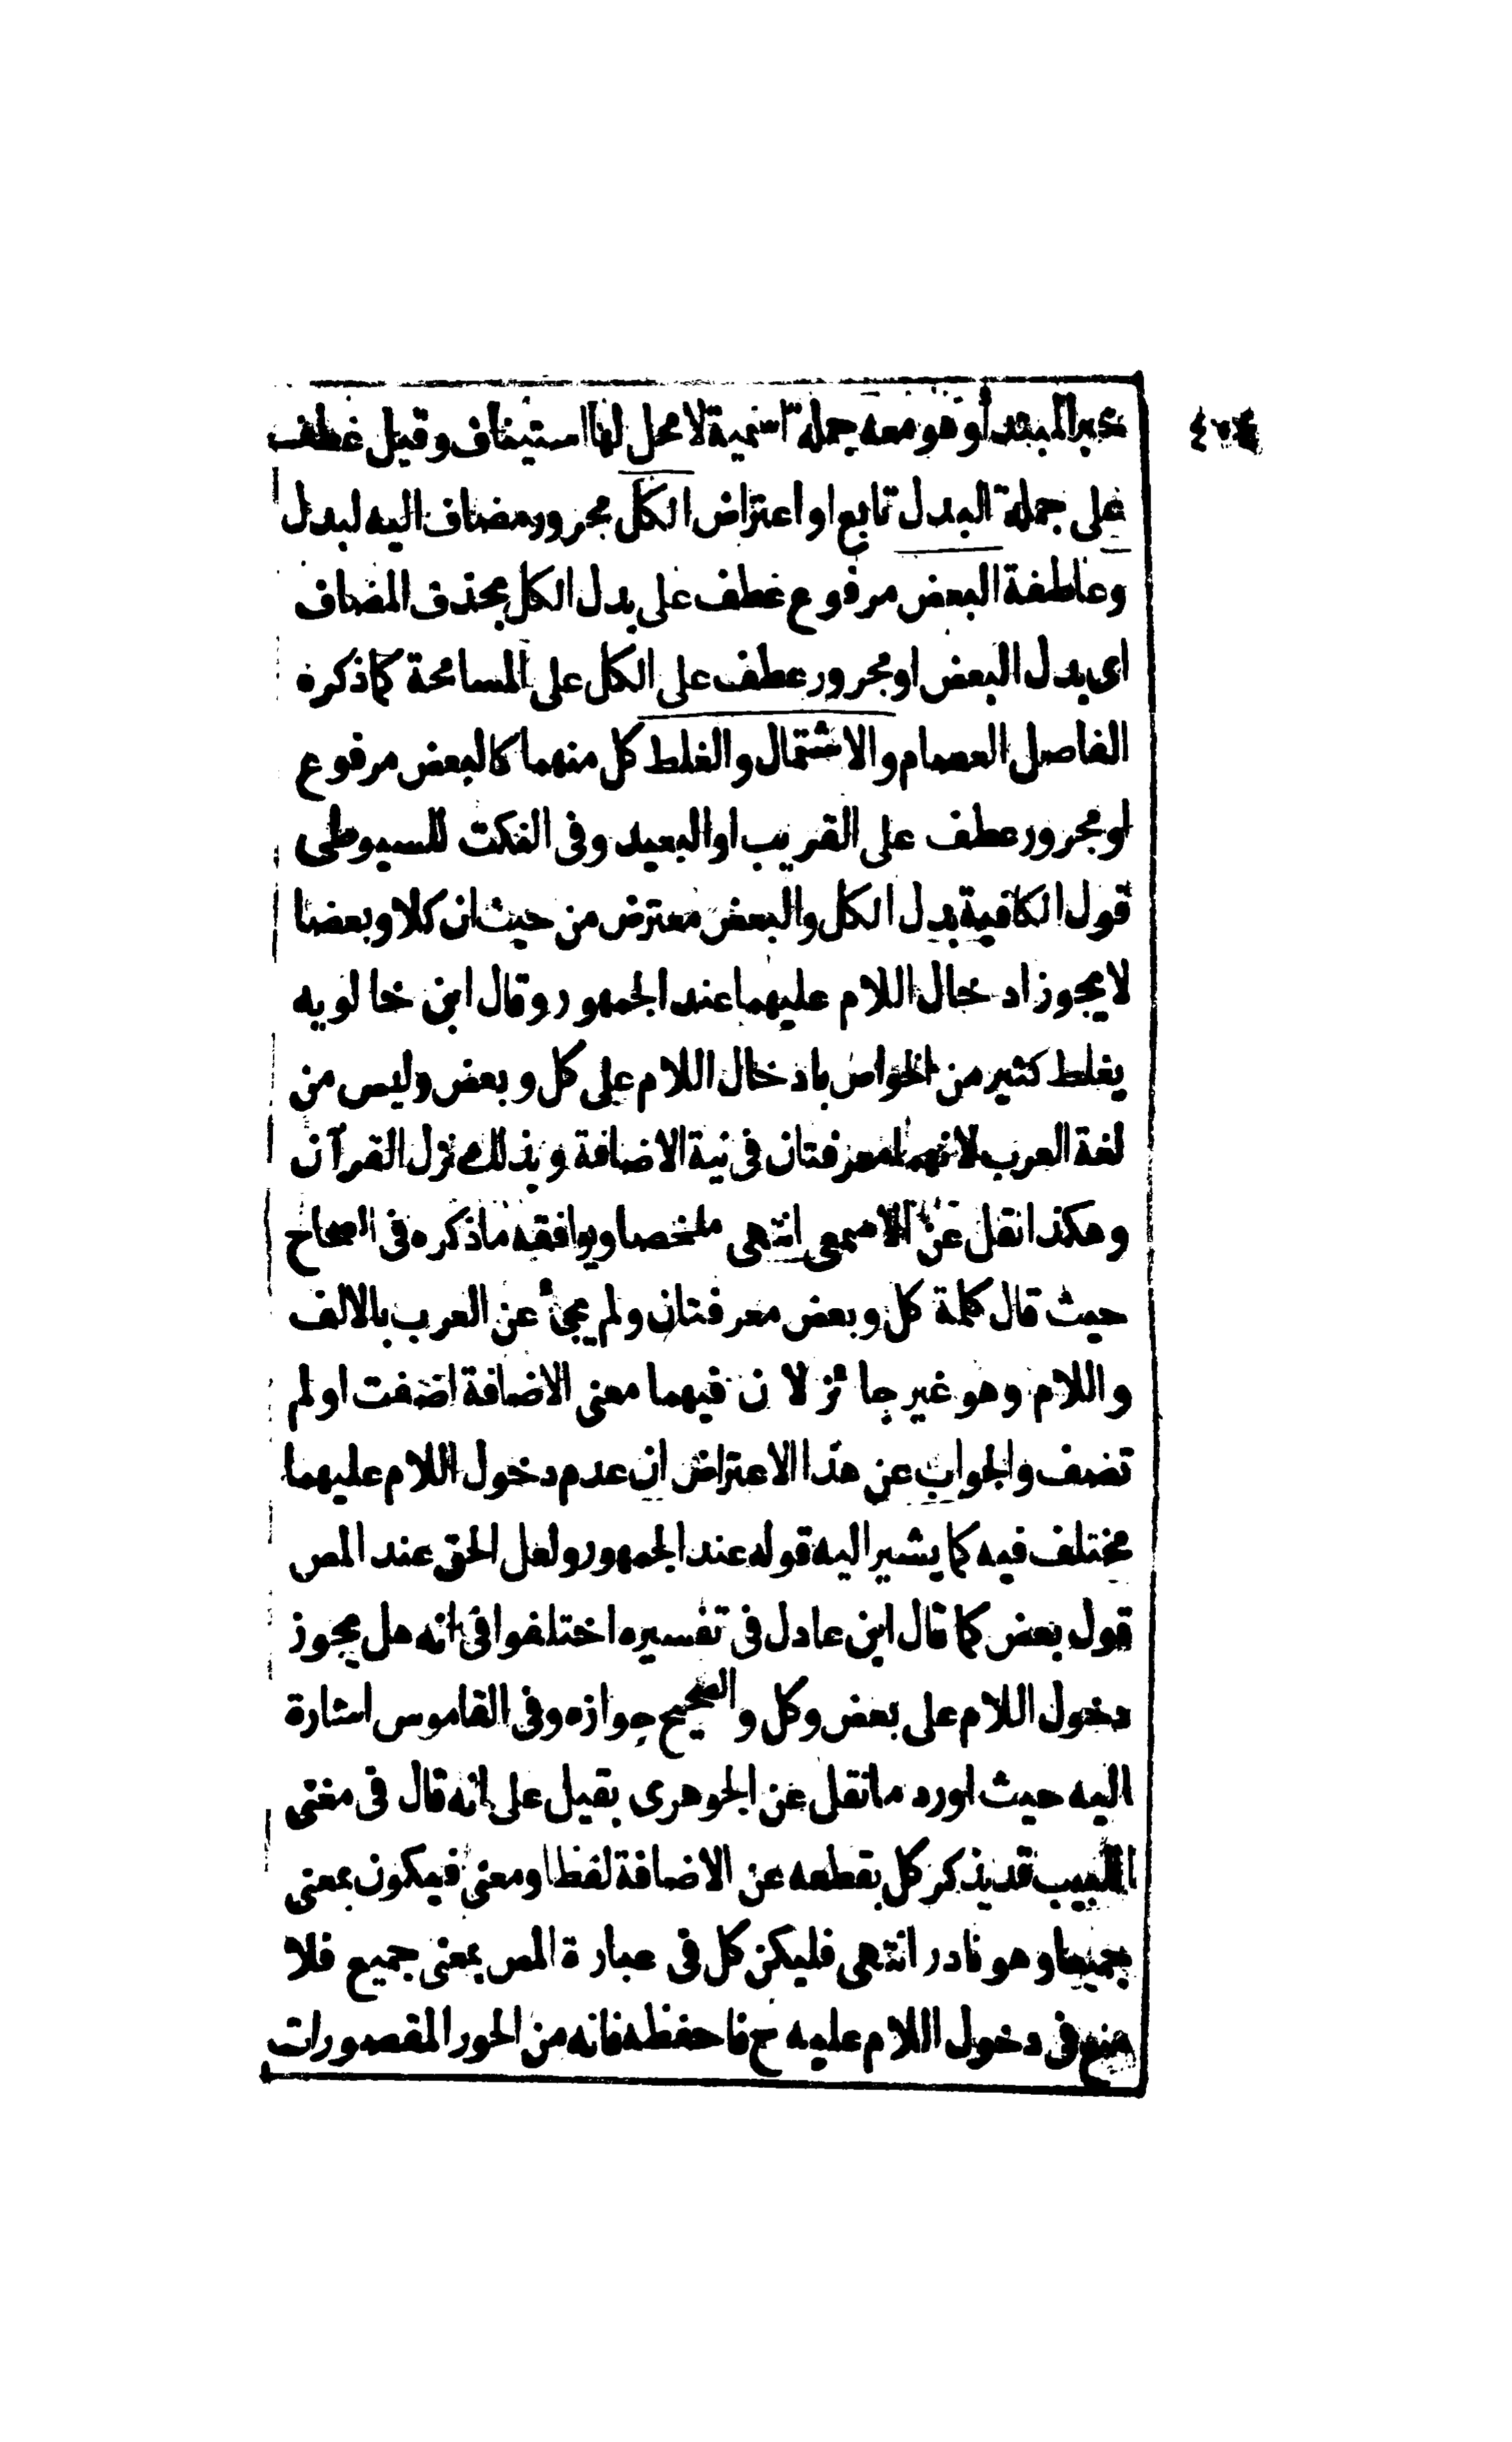 خبر المبتدأ وهو معه جملة اسمية لا محل لها استيناف وقيل عطف
على جملة البدل تابع او اعتراض الكل مجرور مضاف اليه لبدل
وعاطفة البعض مرفوع عطف على بدل الكل بحذف المضاف
اى بدل البعض او مجرور عطف على الكل على المسامحة كما ذكره
الفاضل العصام والاشتمال والغلط كل منهما كالبعض مرفوع
او مجرور عطف على القريب او البعيد وفى النكت للسيوطى
قول الكافية بدل الكل والبعض معترض من حيث ان كلا وبعضا
لا يجوز ادخال اللام عليهما عند الجمهور وقال ابن خالويه
يغلط كثير من الخواص بادخال اللام على كل وبعض وليس من
لغة العرب لانهما معرفتان فى نية الاضافة وبذلك نزل القرآن
وهكذا نقل عن الاصمعى انتهى ملخصا ويوافقه ما ذكره فى الصحاح
حيث قال كلمة كل وبعض معرفتان ولم يجئ عن العرب بالالف
واللام وهو غير جائز لان فيهما معنى الاضافة اضفت او لم
تضف والجواب عن هذا الاعتراض ان عدم دخول اللام عليهما
مختلف فيه كما يشير اليه قوله عند الجمهور ولعل الحق عند المص
قول بعض كما قال ابن عادل فى تفسيره اختلفوا فى انه هل يجوز
دخول اللام على بعض وكل والصحيح جوازه وفى القاموس اشارة
اليه حيث اورد ما نقل عن الجوهرى بقيل على انه قال فى مغنى
اللبيب قد يذكر كل بقطعه عن الاضافة لفظا ومعنى فيكون بمعنى
جميعا وهو نادر انتهى فليكن كل فى عبارة المص بمعنى جميع فلا
منع فى دخول اللام عليه ح فاحفظه فانه من الحور المقصورات